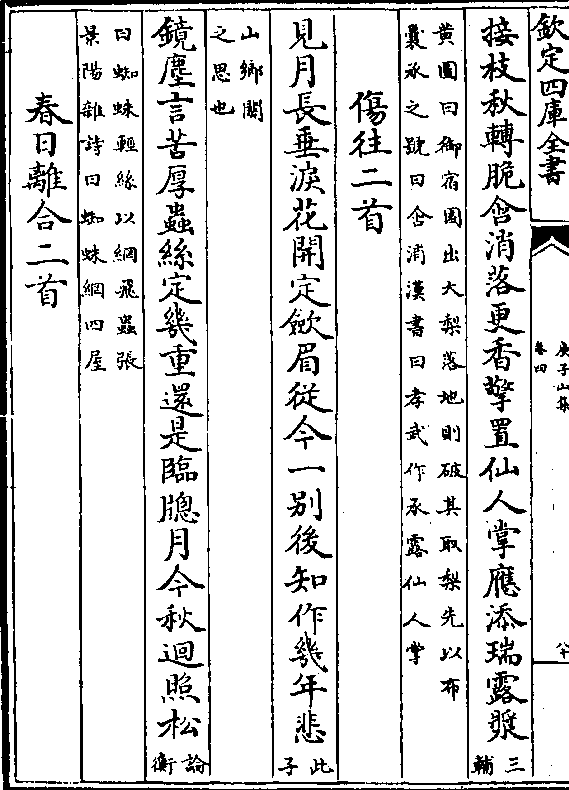 欽定四庫全書
庾子山集
卷四
八十
接枝秋轉脆含消落更香擎置仙人掌應添瑞露漿三輔
黄圖曰御宿園出大梨落地則破其取梨先以布
囊承之號曰含消漢書曰孝武作承露仙人掌
傷往二首
見月長垂淚花開定歛眉從今一别後知作幾年悲此子
山鄉關
之思也
鏡塵言苦厚蟲絲定幾重還是臨牕月今秋迴照松論衡
曰蜘蛛輕絲以網飛蟲張
景陽雜詩曰蜘蛛網四屋
春日離合二首